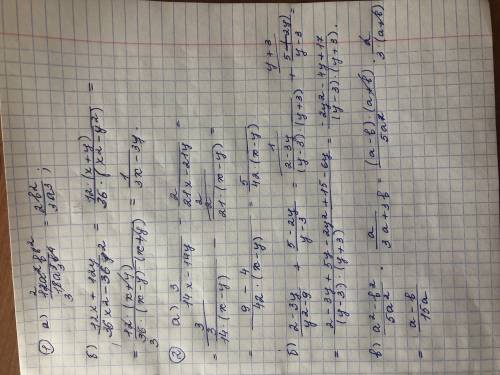 ① а) 12a²b² / 18a³b⁴ = 2b² / 3a³ ;
б) 12x + 12y / 36x² - 36y² = 12·(x+y) / 36·(x² - y²) =
= 12·(x+y) / 36·(x-y)(x+y) = 1 / 3x - 3y.
② а) 3 / 14x - 14y - 2 / 21x - 21y =
= 3 / 14·(x-y) - 2 / 21·(x-y) =
= 9 - 4 / 42·(x-y) = 5 / 42·(x-y)
б) 2-3y / y²-9 + 5-2y / y-3 = 2-3y / (y-3)(y+3) + 5-2y / y-3 =
= 2-3y + 5y - 2y² + 15 - 6y / (y-3)·(y+3) = -2y² - 4y + 17 / (y-3)·(y+3).
в) a² - b² / 5a² · a / 3a + 3b = (a-b)·(a+b) / 5a² · a / 3·(a+b)
= a-b / 15a